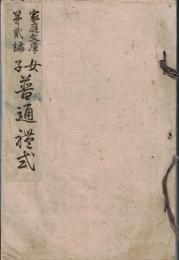 家庭文庫
第貳編
女子普通禮式